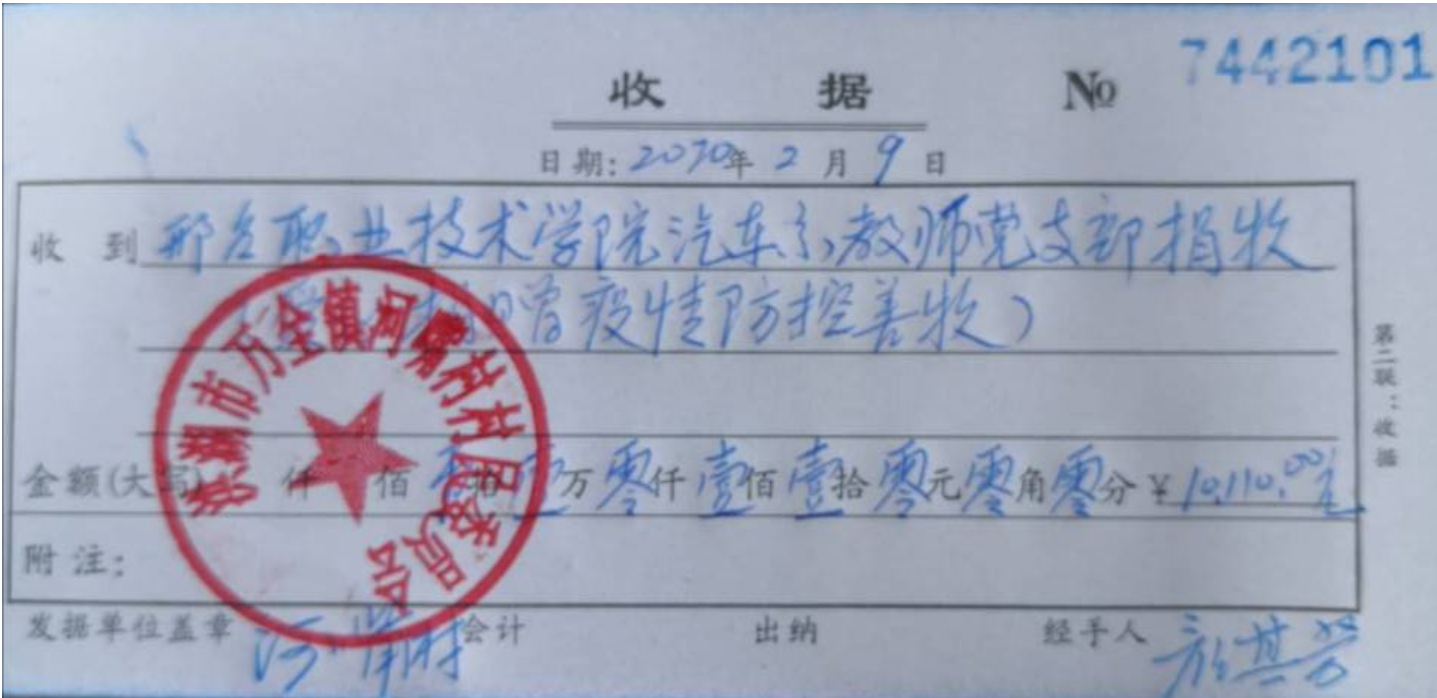 收 据 № 7442101
日期: 2020年 2 月 9 日
收 到 邢台职业技术学院汽车系教师党支部捐款
捐赠疫情防控善款)
金额(大写) 仟 佰 拾 壹万 零仟 壹佰 壹拾 零元 零角 零分 ¥ 10,110.00元
附 注:
发据单位盖章 河 村 会计 出纳 经手人
第二联:收据
市万全镇河 村村民委员会